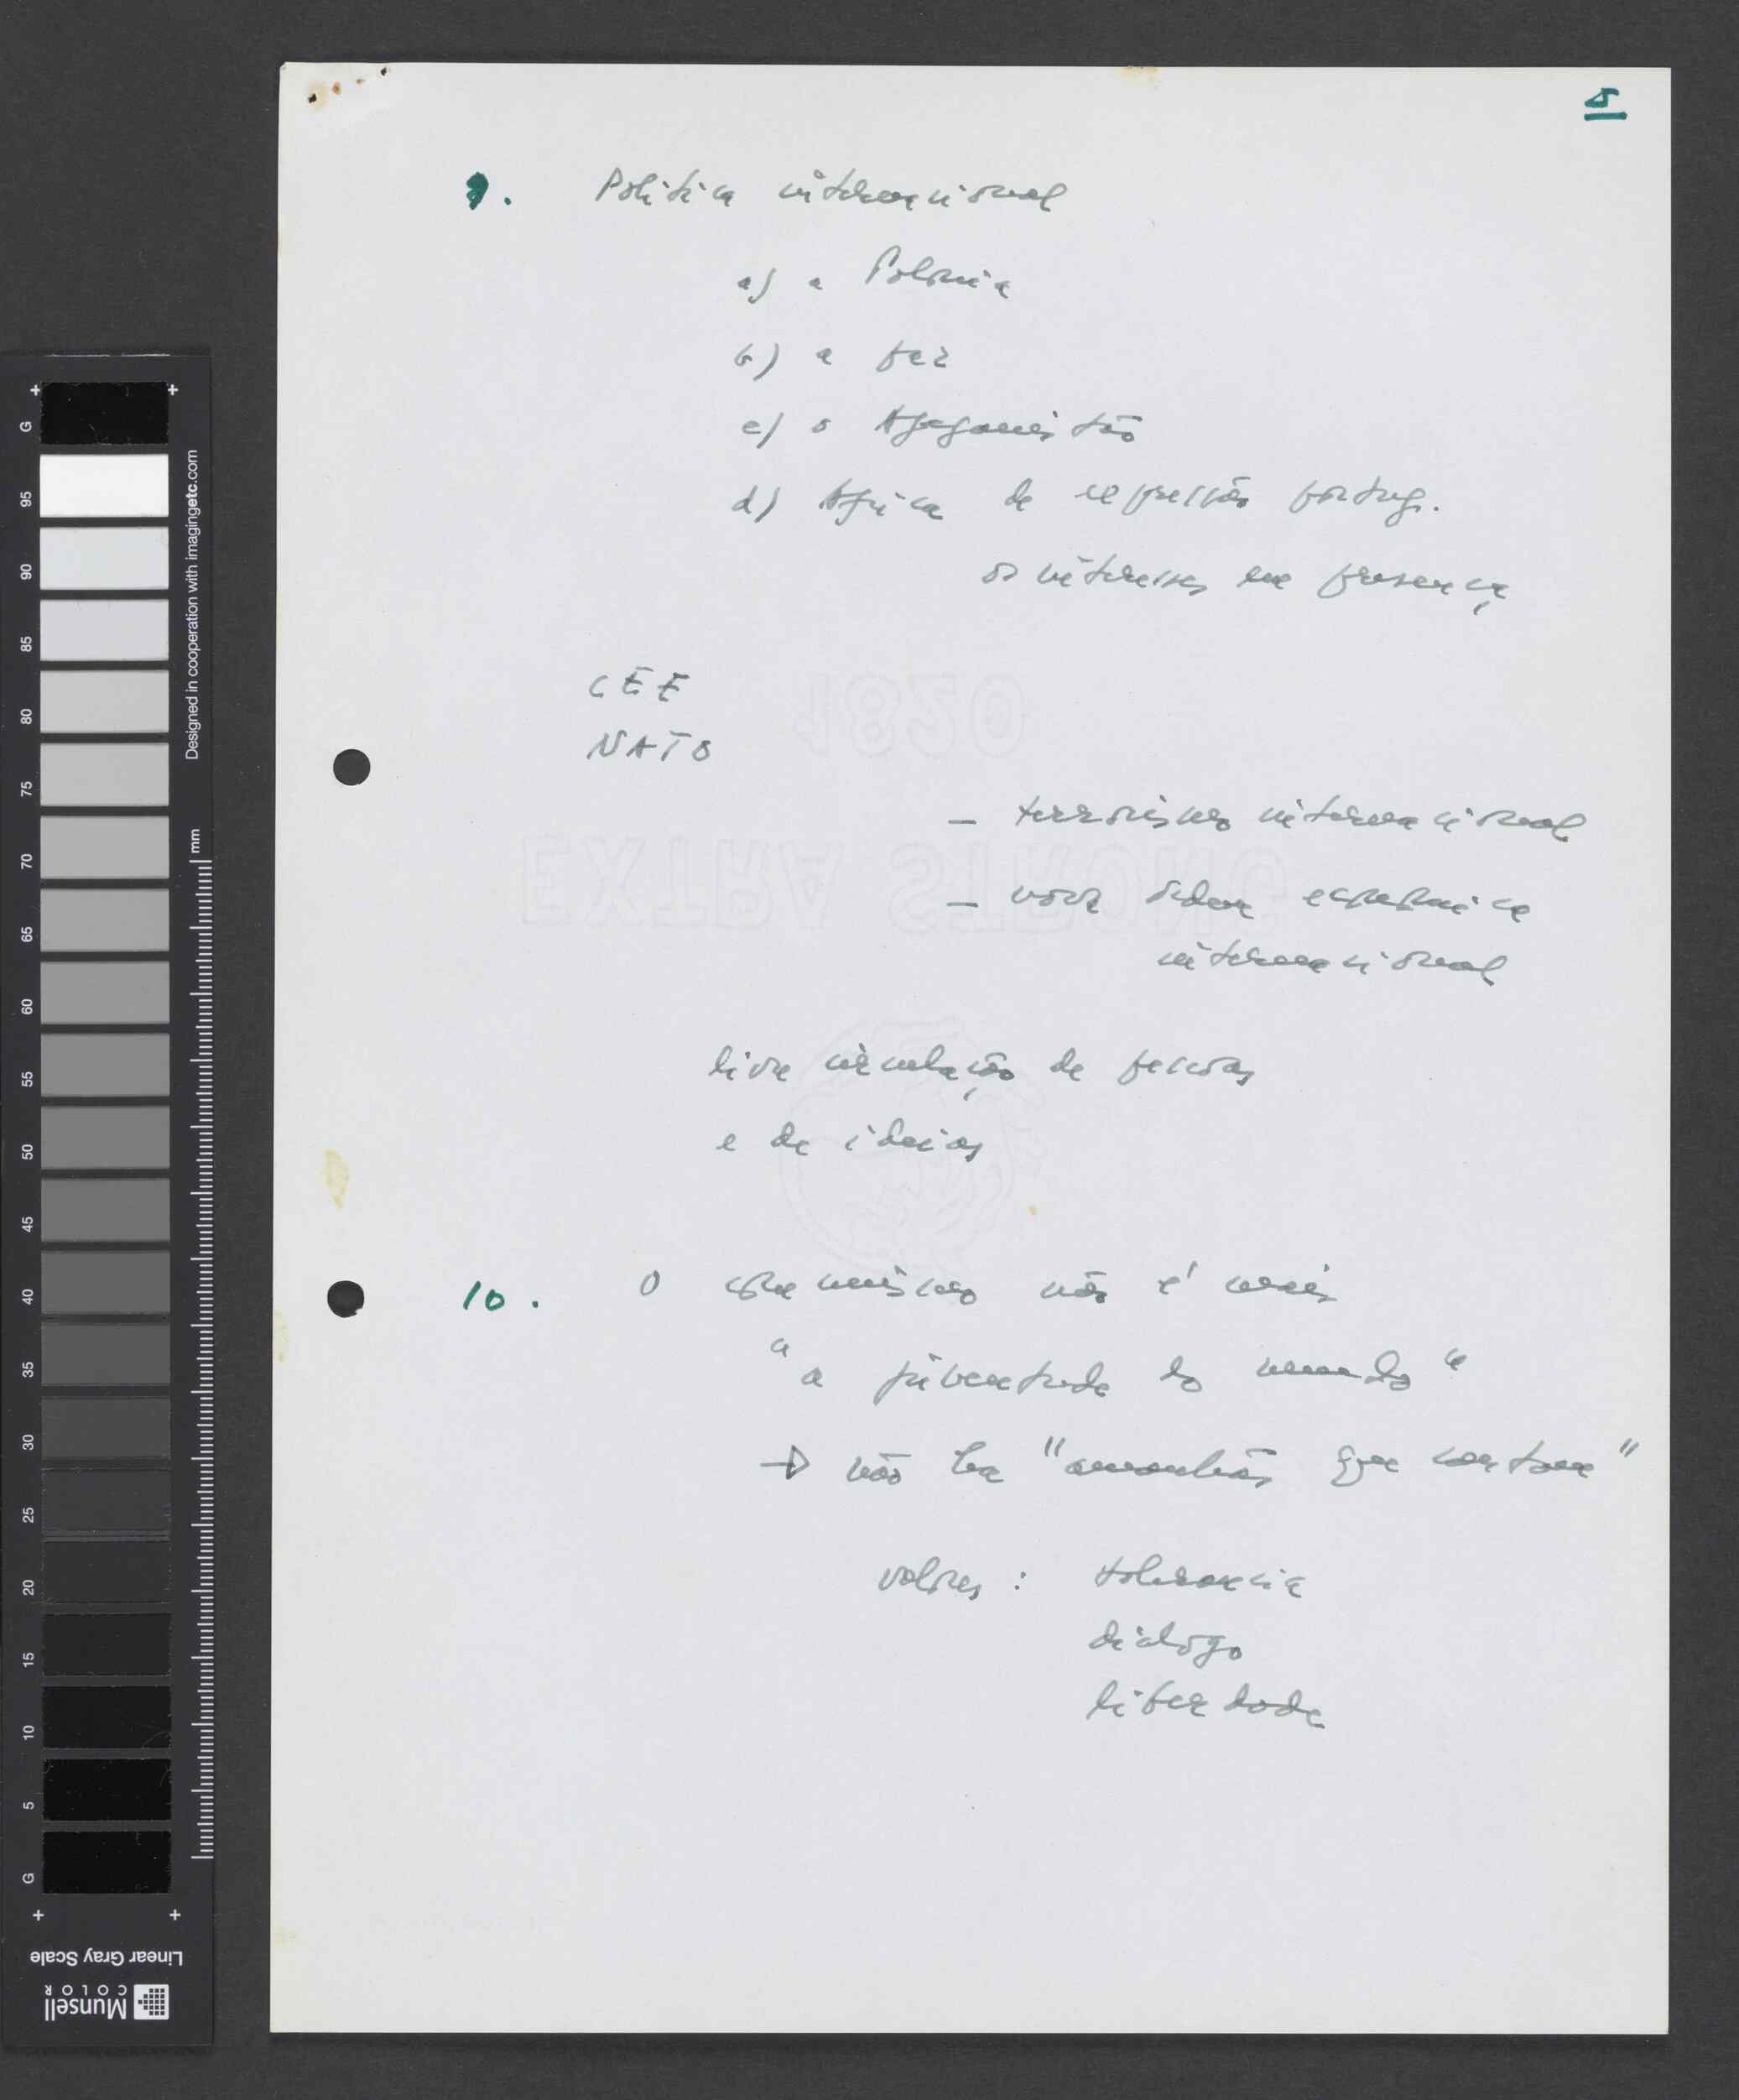 5
9. Politica internacional
a) a Polonia
b) a paz
c) o Afeganistão
d) Africa de expressão portug.
os interesses em presença
CEE
NATO
1820
— terrorismo internacional
EXTRA STRONG
— nova ordem economica
internacional
livre circulação de pessoas
e de ideias
10. O comunismo não é mais
"a juventude do mundo"
→ não ha "amanhãs que cantam"
valores : tolerancia
diálogo
liberdade
G
95
90
85
80
75
70
65
60
55
50
45
40
35
30
25
20
15
10
5
G
Designed in cooperation with imagingetc.com
mm
Linear Gray Scale
Munsell
COLOR